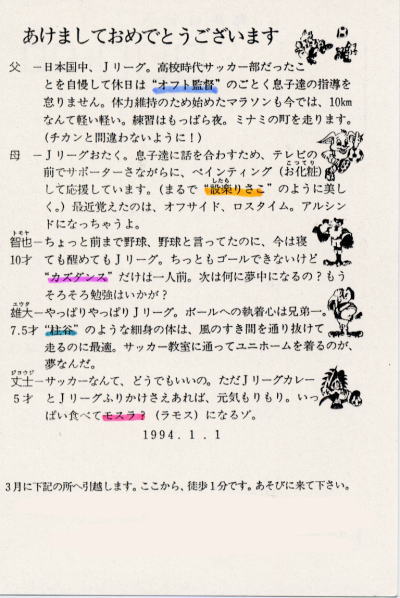 あけましておめでとうございます
父 －日本国中、Jリーグ。高校時代サッカー部だったこ
とを自慢して休日は“オフト監督”のごとく息子達の指導を
怠りません。体力維持のため始めたマラソンも今では、10km
なんて軽い軽い。練習はもっぱら夜。ミナミの町を走ります。
（チカンと間違わないように！）
母 －Jリーグおたく。息子達に話を合わすため、テレビの
前でサポーターさながらに、ペインティング（お化粧）こってり
して応援しています。（まるで“設楽りさこ”のように美ししたら
く。）最近覚えたのは、オフサイド、ロスタイム。アルシン
ドになっちゃうよ。
トモヤ
智也－ちょっと前まで野球、野球と言ってたのに、今は寝
10才 ても醒めてもJリーグ。ちっともゴールできないけど
“カズダンス”だけは一人前。次は何に夢中になるの？もう
そろそろ勉強はいかが？
ユウタ
雄大－やっぱりやっぱりJリーグ。ボールへの執着心は兄弟一。
7.5才 “柱谷”のような細身の体は、風のすき間を通り抜けて
走るのに最適。サッカー教室に通ってユニホームを着るのが、
夢なんだ。
ジョウジ
丈士－サッカーなんて、どうでもいいの。ただJリーグカレー
5才 とJリーグふりかけさえあれば、元気もりもり。いっ
ぱい食べてモスラ？（ラモス）になるゾ。
1994.1.1
3月に下記の所へ引越します。ここから、徒歩1分です。あそびに来て下さい。